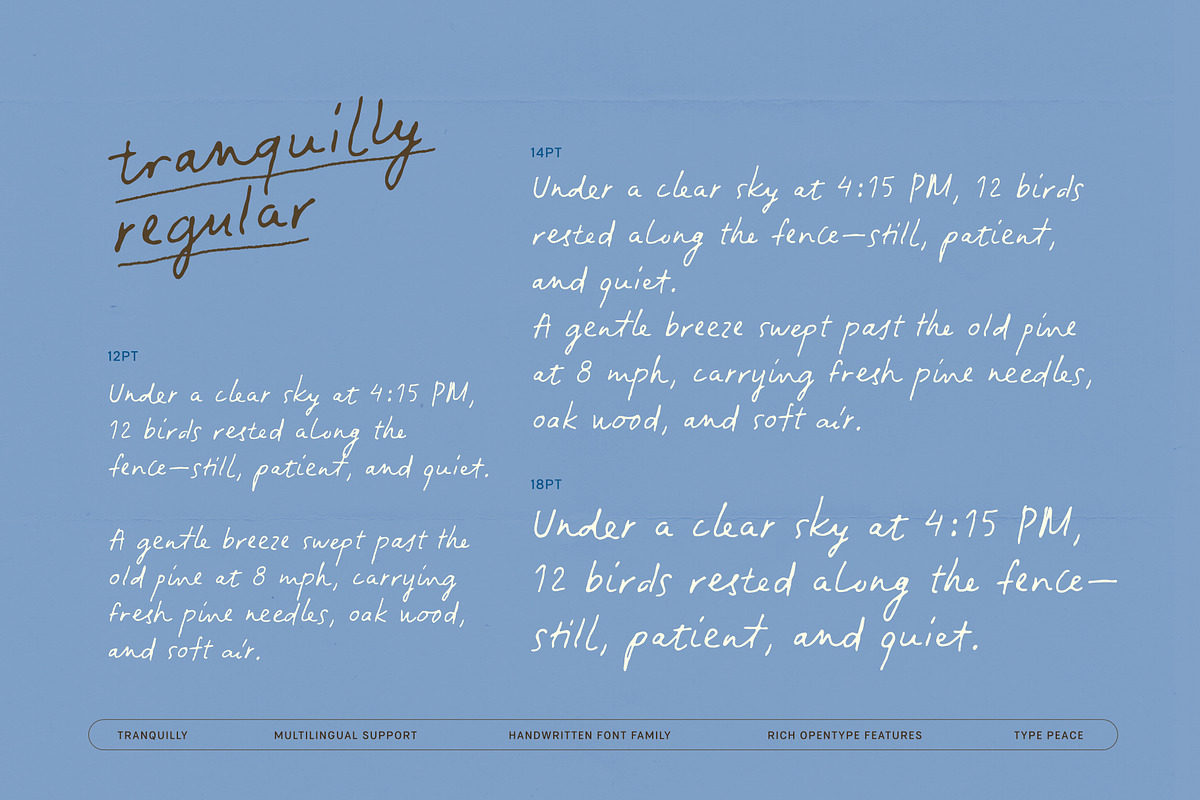 tranquilly
regular
12PT
Under a clear sky at 4:15 PM,
12 birds rested along the
fence—still, patient, and quiet.
A gentle breeze swept past the
old pine at 8 mph, carrying
fresh pine needles, oak wood,
and soft air.
14PT
Under a clear sky at 4:15 PM, 12 birds
rested along the fence—still, patient,
and quiet.
A gentle breeze swept past the old pine
at 8 mph, carrying fresh pine needles,
oak wood, and soft air.
18PT
Under a clear sky at 4:15 PM,
12 birds rested along the fence—
still, patient, and quiet.
TRANQUILLY MULTILINGUAL SUPPORT HANDWRITTEN FONT FAMILY RICH OPENTYPE FEATURES TYPE PEACE